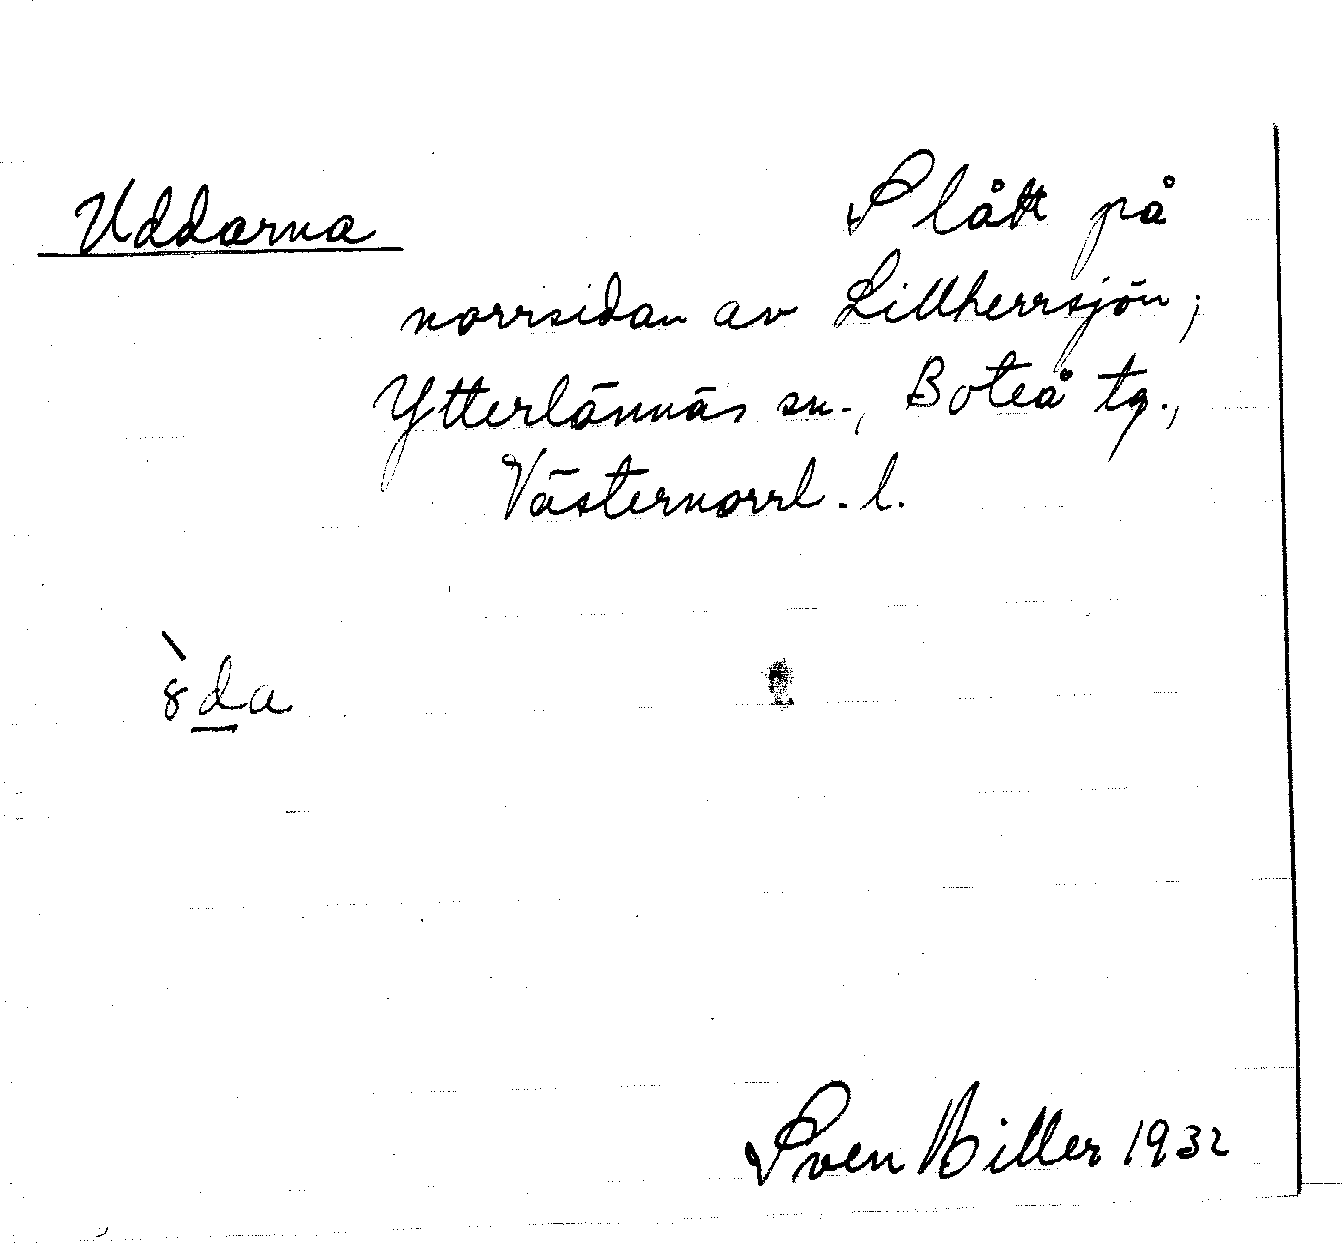 Uddarna Slått på
norrsidan av Lillherrsjön,
Ytterlännäs sn., Boteå tg.,
Västernorrl. l.
8̀da
Sven Hiller 1932